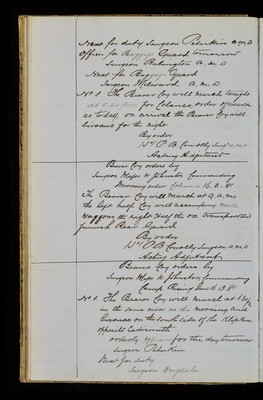 Next for duty Surgeon Peterkin a.m.d
Officer for Baggage Guard tomorrow
Surgeon Babington a.m.d
Next for Baggage Guard
Surgeon Milward a.m.d
No 1 The Bearer Coy will march tonight
at for order of march
as to day, on arrival the Bearer Coy will
bivouac for the night
By order
P B Connolly Surgn a.m.d
Acting Adjutant
Bearer Coy orders by
Surgeon Major W Johnston Commanding
Morning order 16.3.81
The Bearer Coy will march at 9 a.m.
the left half Coy will accompany mule
waggons the right Half the ox transport and
furnish Rear Guard
By order
P B Connolly Surgeon a.m.d
Acting Adjutant
Bearer Coy orders by
Surgeon Major W Johnston Commanding
Camp 3.81
No 1 The Bearer Coy will march at
in the same order as this morning and
bivouac on the South side of the
opposite
orderly officer for the day tomorrow
Surgeon Peterkin
Next for duty
Surgeon